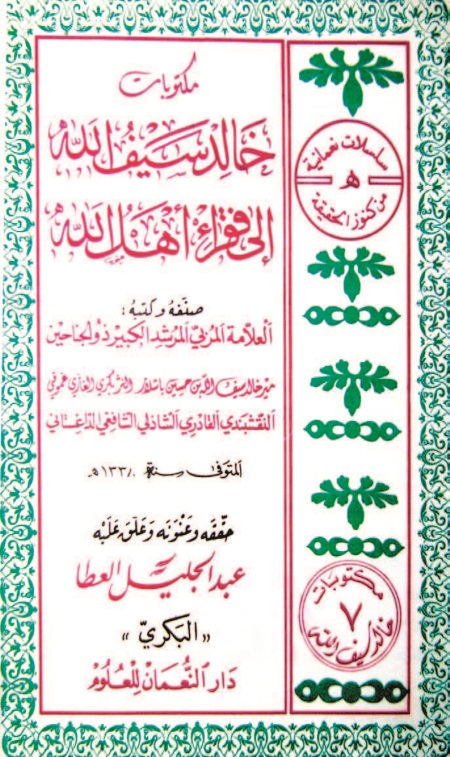 مكتوبات
خالد سيف الله
إلى فقراء أهل الله
صنفه وكتبه:
العلامة المربي المرشد الكبير ذو الجناحين
مير خالد سيف الله بن حسين باشلار النزكبري الغازي غموقي
النقشبندي القادري الشاذلي الشافعي الداغستاني
المتوفى سنة ١٣٣٨هـ
حققه وعنونه وعلق عليه
عبد الجليل العطا
«البكري»
دار النعمان للعلوم
سلسلات نعمانية
٥
من كنوز الحقيقة
مكتوبات
٧
خالد سيف الله